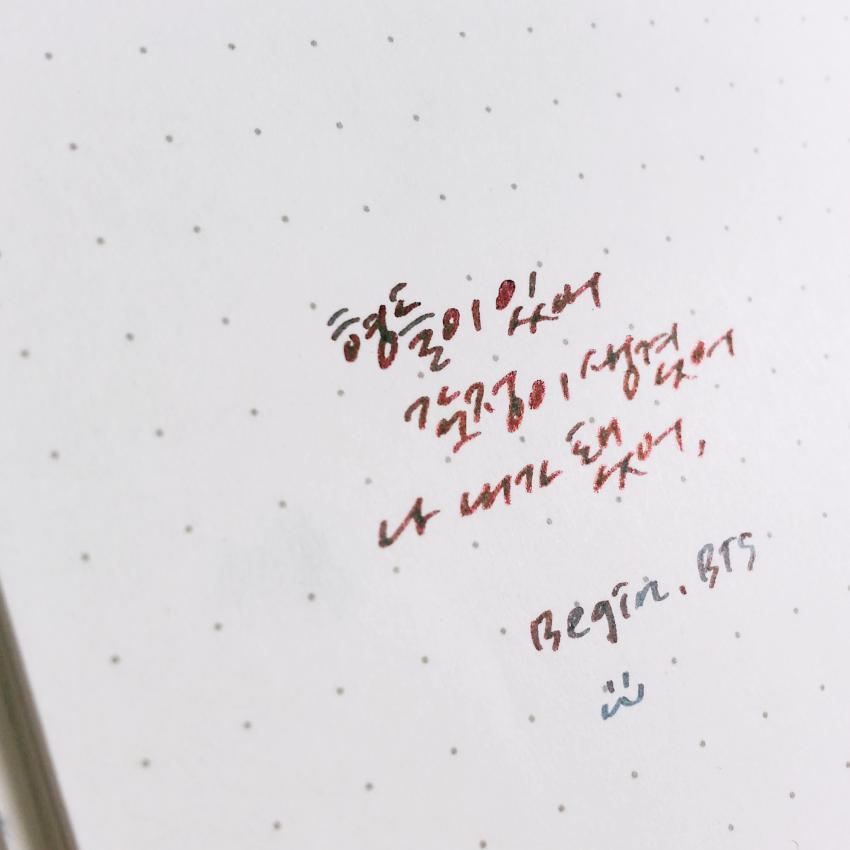 형들이 있어
감정이 생겼어
나 내가 됐어,
Begin. BTS